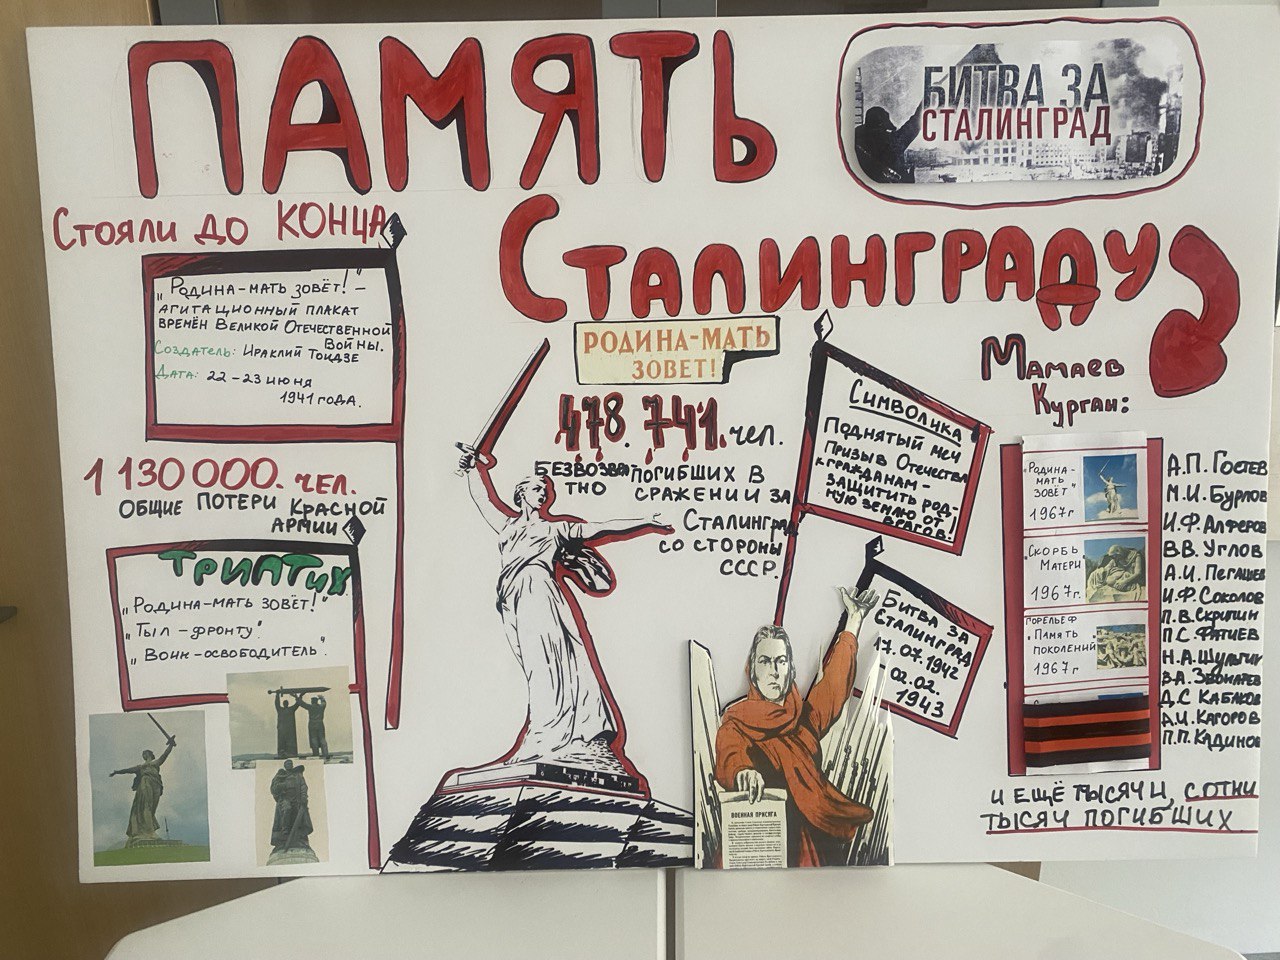 ПАМЯТЬ
СТАЛИНГРАДУ
БИТВА ЗА
СТАЛИНГРАД
СТОЯЛИ ДО КОНЦА
„РОДИНА-МАТЬ ЗОВЁТ!" –
АГИТАЦИОННЫЙ ПЛАКАТ
ВРЕМЁН ВЕЛИКОЙ ОТЕЧЕСТВЕННОЙ
ВОЙНЫ.
СОЗДАТЕЛЬ: ИРАКЛИЙ ТОИДЗЕ
ДАТА: 22-23 ИЮНЯ
1941 ГОДА.
1 130 000. ЧЕЛ.
ОБЩИЕ ПОТЕРИ КРАСНОЙ
АРМИИ
ТРИПТИХ
„РОДИНА-МАТЬ ЗОВЁТ!"
„ТЫЛ-ФРОНТУ"
„ВОИН-ОСВОБОДИТЕЛЬ".
РОДИНА-МАТЬ
ЗОВЕТ!
478.741. ЧЕЛ.
БЕЗВОЗВРАТНО ПОГИБШИХ В
СРАЖЕНИИ ЗА
СТАЛИНГРАД
СО СТОРОНЫ
СССР.
СИМВОЛИКА
ПОДНЯТЫЙ МЕЧ
ПРИЗЫВ ОТЕЧЕСТВА
К ГРАЖДАНАМ –
ЗАЩИТИТЬ РОД-
НУЮ ЗЕМЛЮ ОТ
ВРАГОВ!
БИТВА ЗА
СТАЛИНГРАД
17.07.1942
02.02.
1943
ВОЕННАЯ ПРИСЯГА
МАМАЕВ
КУРГАН:
„РОДИНА-
МАТЬ
ЗОВЁТ"
1967г
„СКОРБЬ
МАТЕРИ"
1967г.
ГОРЕЛЬЕФ
„ПАМЯТЬ
ПОКОЛЕНИЙ"
1967г
А.П. ГОСТЕВ
М.И. БУРЛОВ
И.Ф. АЛФЕРОВ
В.В. УГЛОВ
А.И. ПЕГАШЕВ
И.Ф. СОКОЛОВ
П.В. СКРИПИН
П.С. ФАТИЕВ
Н.А. ШУЛЬГИН
В.А. ЗВОНАРЕВ
Д.С. КАБАКОВ
Д.И. КАГОРОВ
П.П. КАДИНОВ
И ЕЩЁ ТЫСЯЧИ, СОТНИ
ТЫСЯЧ ПОГИБШИХ.